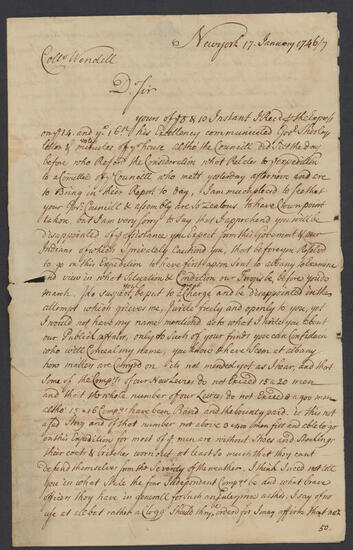 New york 17. January 1746/7
Coll.o Wendell
D.r Sir
yours of y.e 8 & 10 Instant I Rec.d
on y.e 14. and y.e his Excellency communicated Gov.r Shirley
Letter & of y.e house at the Councill did Sit the day
before who Refer'd the Consideration what Relates to y.e Expedition
to a Comittee of y.e Councill who mett yesterday afternoon and are
to Bring in their Report to Day, I am much pleased to see that
your Gov.r Councill & assembly are so Zealous to have Crown point
taken, but I am very sorry to say that I apprehend you will be
Disappointed of y.e assistance you Expect from this Goverment & our
Indians of which I Privately Caution'd you, that before you Resolve
to go on this Expedition to have first upon Sent to albany to Examine
and view in what Situation & Condition our Troops be, before you do
march, tho suppose be put to a Charge and be disappointed in the
attempt which grieves me, I write freely and openly to you, yet
I would not have my name mentioned as to what I write you about
our Publick affairs, only to such of your friends you can Confide in
who will Conceal my name, you know & have Seen at albany
how matters are Carry'd on Its not mended yet as I hear, and that
Some of the Comp.ys of our New Levies do not Exceed 15 or 20 men
and that the whole number of our Levies do not Exceed 900 men
altho' 15 or 16 Comp.ys have been Raised and the bounty paid. is this not
a sad Story and of that number not above are fitt and able to go
on this Expedition for most of y.e men are without Shoes and Stockings
their coats & britches worn out at least so much that they cant
defend themselves from the Severity of the weather, I think I need not tell
you in what State the four Independant Comp.ys be and what brave
officers they have in generall for such an Enterprise as this, I say of no
use at all but rather a Clogg Should thr.o orders for
50.